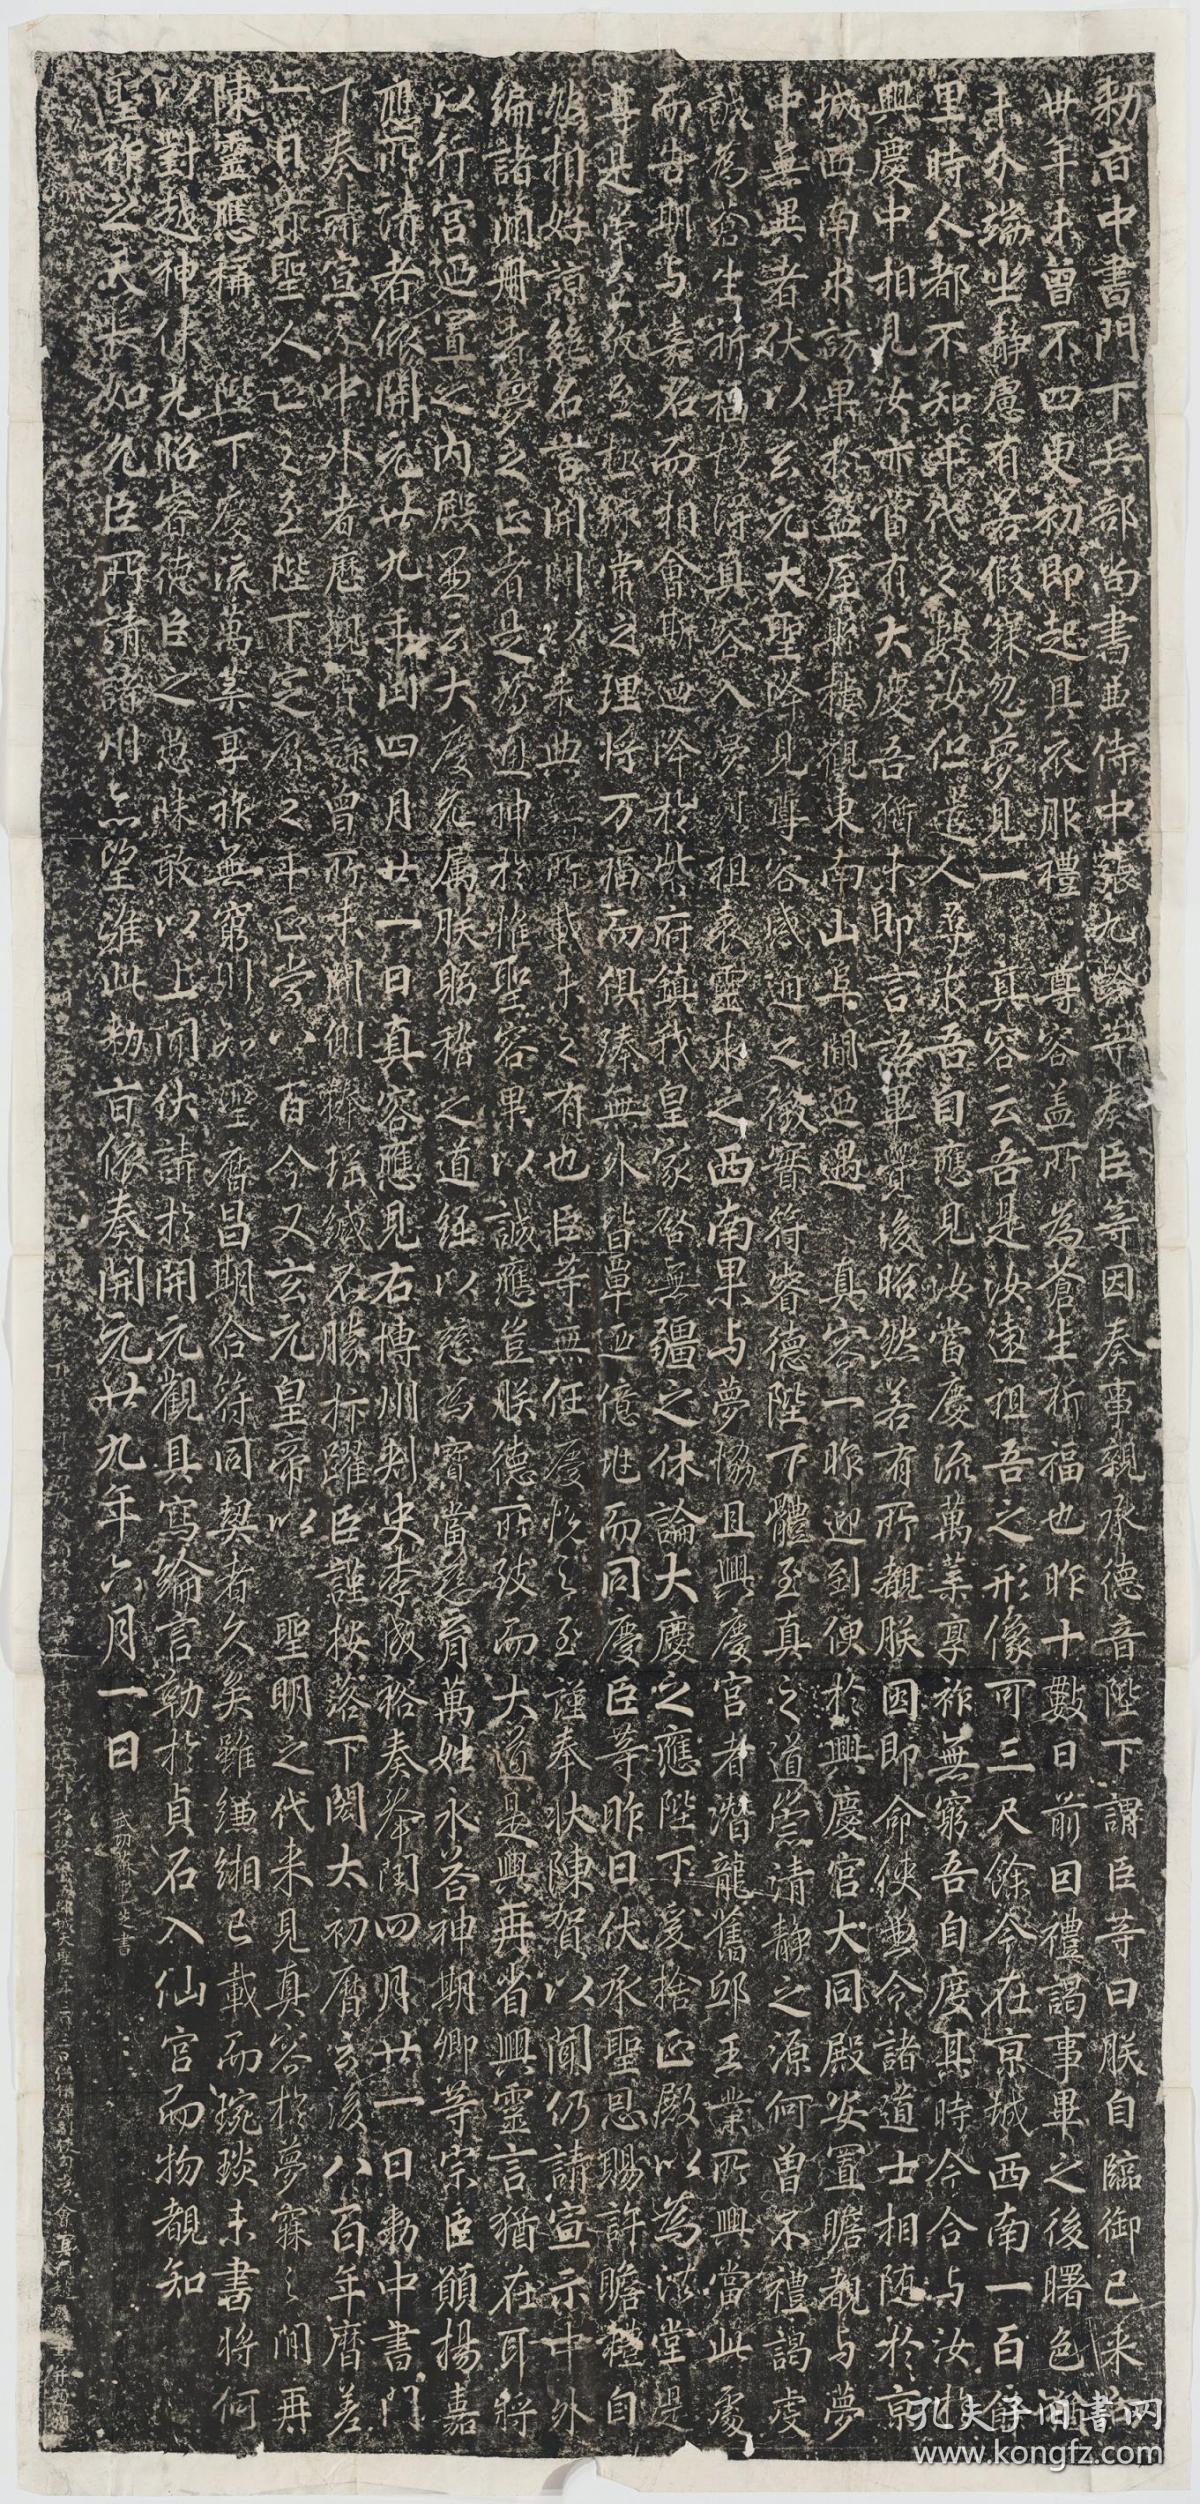 勅旨中書門下兵部尚書兼侍中張九齡等奏臣等因奏事親承德音陛下謂臣等曰朕自臨御已來
卅年未曾不四更初即起具衣服禮尊容盖所為蒼生祈福也昨十數日前因禮謁事畢之後曙色
未分端坐静慮有若假寐忽夢見一真容云吾是汝遠祖吾之形像可三尺餘今在京城西南一百餘
里時人都不知年代之數汝但遣人尋求吾自應見汝當慶流萬葉享祚無窮吾自度其時今合与汝
興慶中相見汝亦當有大慶吾猶未即言語畢覺後昭然若有所覩朕因即命使兼令諸道士相随於京
城西南求訪果於盩厔縣樓觀東南山阜間迺遇真容一昨迎到便於興慶宮大同殿安置瞻覩与夢
中無異者伏以玄元大聖降見尊容感通之徵實符睿德陛下體至真之道崇清静之源何曾不禮謁虔
誠為蒼生祈福故得真容入夢烈祖表靈求之西南果与夢協且興慶宮者潛龍舊邸王業所興當此處
而告期与嘉名而相會斯迺降於紫府鎮我皇家啓無疆之休論大慶之應陛下爰捨正殿以為法堂是
尊是崇至敬至極殊常之理將万福而俱臻無外皆覃迺億兆而同慶臣等昨日伏承聖恩賜許瞻禮自
然相好諒絶名言開闢以來典籍所載未之有也臣等無任慶悅之至謹奉狀陳賀以聞仍請宣示中外
編諸簡册者夢之正者是謂通神於惟聖容果以誠應豈朕德所致而大道是興再省興靈言猶在耳將
以行宮迎置之内殿并云大慶允属朕躬稽之道經以慈為寳當育萬姓永荅神期卿等宗臣願揚嘉
應所請者依開元廿九年閏四月廿一日真容應見右博州刺史李成裕奏奉閏四月廿一日勅中書門
下奏請宣示中外者歷觀曾所未聞側聽瑶緘不勝抃躍臣謹按落下閎太初曆云後八百年曆差
一日當聖人正之至陛下定曆之年正當八百今又玄元皇帝以聖明之代来見真容於夢寐之間再
陳靈應稱陛下慶流萬葉享祚無窮則知聖曆昌期合符同契者久矣雖縑緗已載而琬琰未書將何
以對越神休光昭容德臣之愚昧敢以上聞伏請於開元觀具寫綸言勒於貞石入仙宮而物覩知
聖祚之天長如允臣所請諸州亦望准此勅旨依奏開元廿九年六月一日
孔夫子旧书网
www.kongfz.com